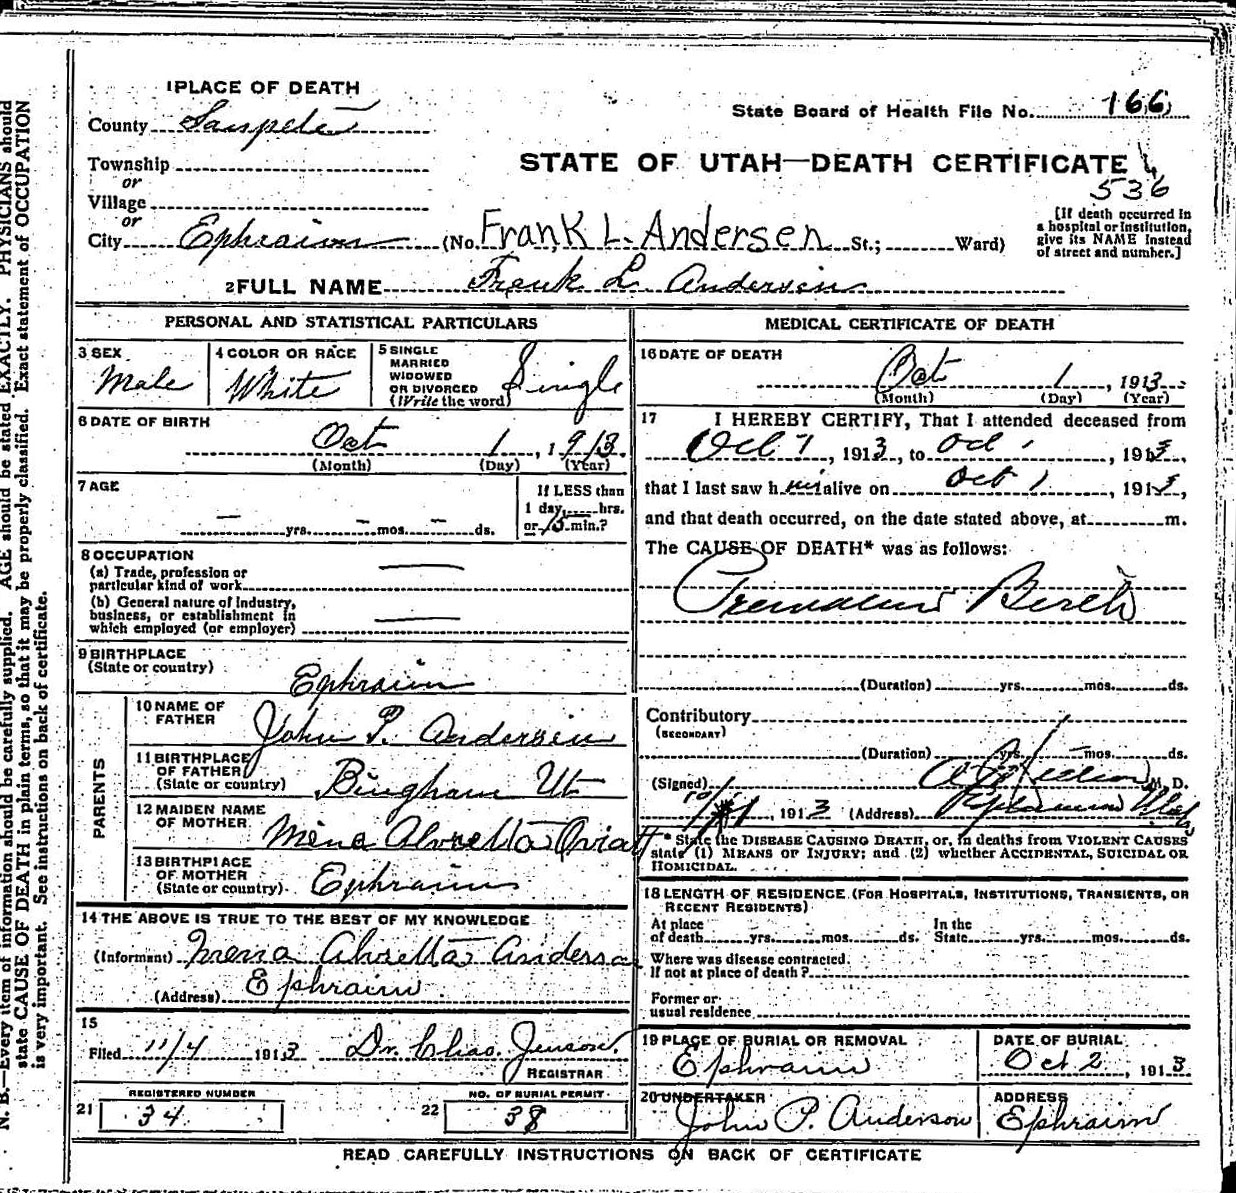 1 PLACE OF DEATH
County Sanpete
State Board of Health File No. 166
Township
or
Village
or
City Ephraim (No. Frank L. Andersen St.; Ward)
STATE OF UTAH—DEATH CERTIFICATE
536
[If death occurred in
a hospital or institution,
give its NAME instead
of street and number.]
2 FULL NAME Frank L. Andersen
PERSONAL AND STATISTICAL PARTICULARS
3 SEX
Male
4 COLOR OR RACE
White
5 SINGLE
MARRIED
WIDOWED
OR DIVORCED
(Write the word) Single
6 DATE OF BIRTH
Oct 1, 1913.
(Month) (Day) (Year)
7 AGE
— yrs. — mos. — ds.
If LESS than
1 day, hrs.
or 15 min.?
8 OCCUPATION
(a) Trade, profession or
particular kind of work —
(b) General nature of industry,
business, or establishment in
which employed (or employer) —
9 BIRTHPLACE
(State or country)
Ephraim
PARENTS
10 NAME OF
FATHER
John P. Andersen
11 BIRTHPLACE
OF FATHER
(State or country) Bingham Ut
12 MAIDEN NAME
OF MOTHER
Mena Alvretta Oviatt
13 BIRTHPLACE
OF MOTHER
(State or country) Ephraim
14 THE ABOVE IS TRUE TO THE BEST OF MY KNOWLEDGE
(Informant) Mena Alvretta Anderson
(Address) Ephraim
15
Filed 11/4 1913 Dr. Chas. Jenson.
REGISTRAR
21 REGISTERED NUMBER
34
22 NO. OF BURIAL PERMIT
38
MEDICAL CERTIFICATE OF DEATH
16 DATE OF DEATH
Oct 1, 1913
(Month) (Day) (Year)
17 I HEREBY CERTIFY, That I attended deceased from
Oct 1 1913, to Oct 1, 1913,
that I last saw him alive on Oct 1, 1913,
and that death occurred, on the date stated above, at m.
The CAUSE OF DEATH* was as follows:
Premature Birth
(Duration) yrs. mos. ds.
Contributory
(SECONDARY)
(Duration) yrs. mos. ds.
(Signed) M. D.
1913 (Address) Ephraim Utah
* State the DISEASE CAUSING DEATH, or, in deaths from VIOLENT CAUSES
state (1) MEANS OF INJURY; and (2) whether ACCIDENTAL, SUICIDAL OR
HOMICIDAL.
18 LENGTH OF RESIDENCE (FOR HOSPITALS, INSTITUTIONS, TRANSIENTS, OR
RECENT RESIDENTS)
At place
of death yrs. mos. ds.
In the
State yrs. mos. ds.
Where was disease contracted
If not at place of death?
Former or
usual residence
19 PLACE OF BURIAL OR REMOVAL
Ephraim
DATE OF BURIAL
Oct 2, 1913
20 UNDERTAKER
John P. Anderson
ADDRESS
Ephraim
READ CAREFULLY INSTRUCTIONS ON BACK OF CERTIFICATE
N. B.—Every item of information should be carefully supplied. AGE should be stated EXACTLY. PHYSICIANS should
state CAUSE OF DEATH in plain terms, so that it may be properly classified. Exact statement of OCCUPATION
is very important. See instructions on back of certificate.